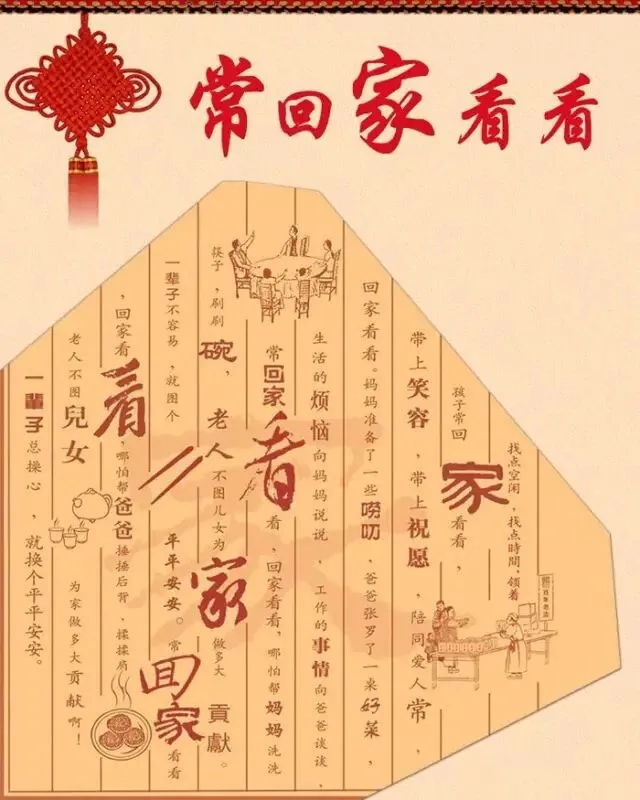 常回家看看
找点空闲，找点時間，領着
孩子常回家看看，
带上笑容，带上祝愿，陪同爱人常，
回家看看。妈妈准备了一些唠叨，爸爸张罗了一桌好菜，
生活的烦恼向妈妈说说，工作的事情向爸爸谈谈，
常回家看看，回家看看，哪怕帮妈妈洗洗
筷子，刷刷碗，老人不图儿女为家做多大貢獻。
一辈子不容易，就图个平平安安。常回家看看
，回家看看，哪怕帮爸爸捶捶后背，揉揉肩
老人不图兒女为家做多大貢献啊！
一輩子总操心，就换个平平安安。